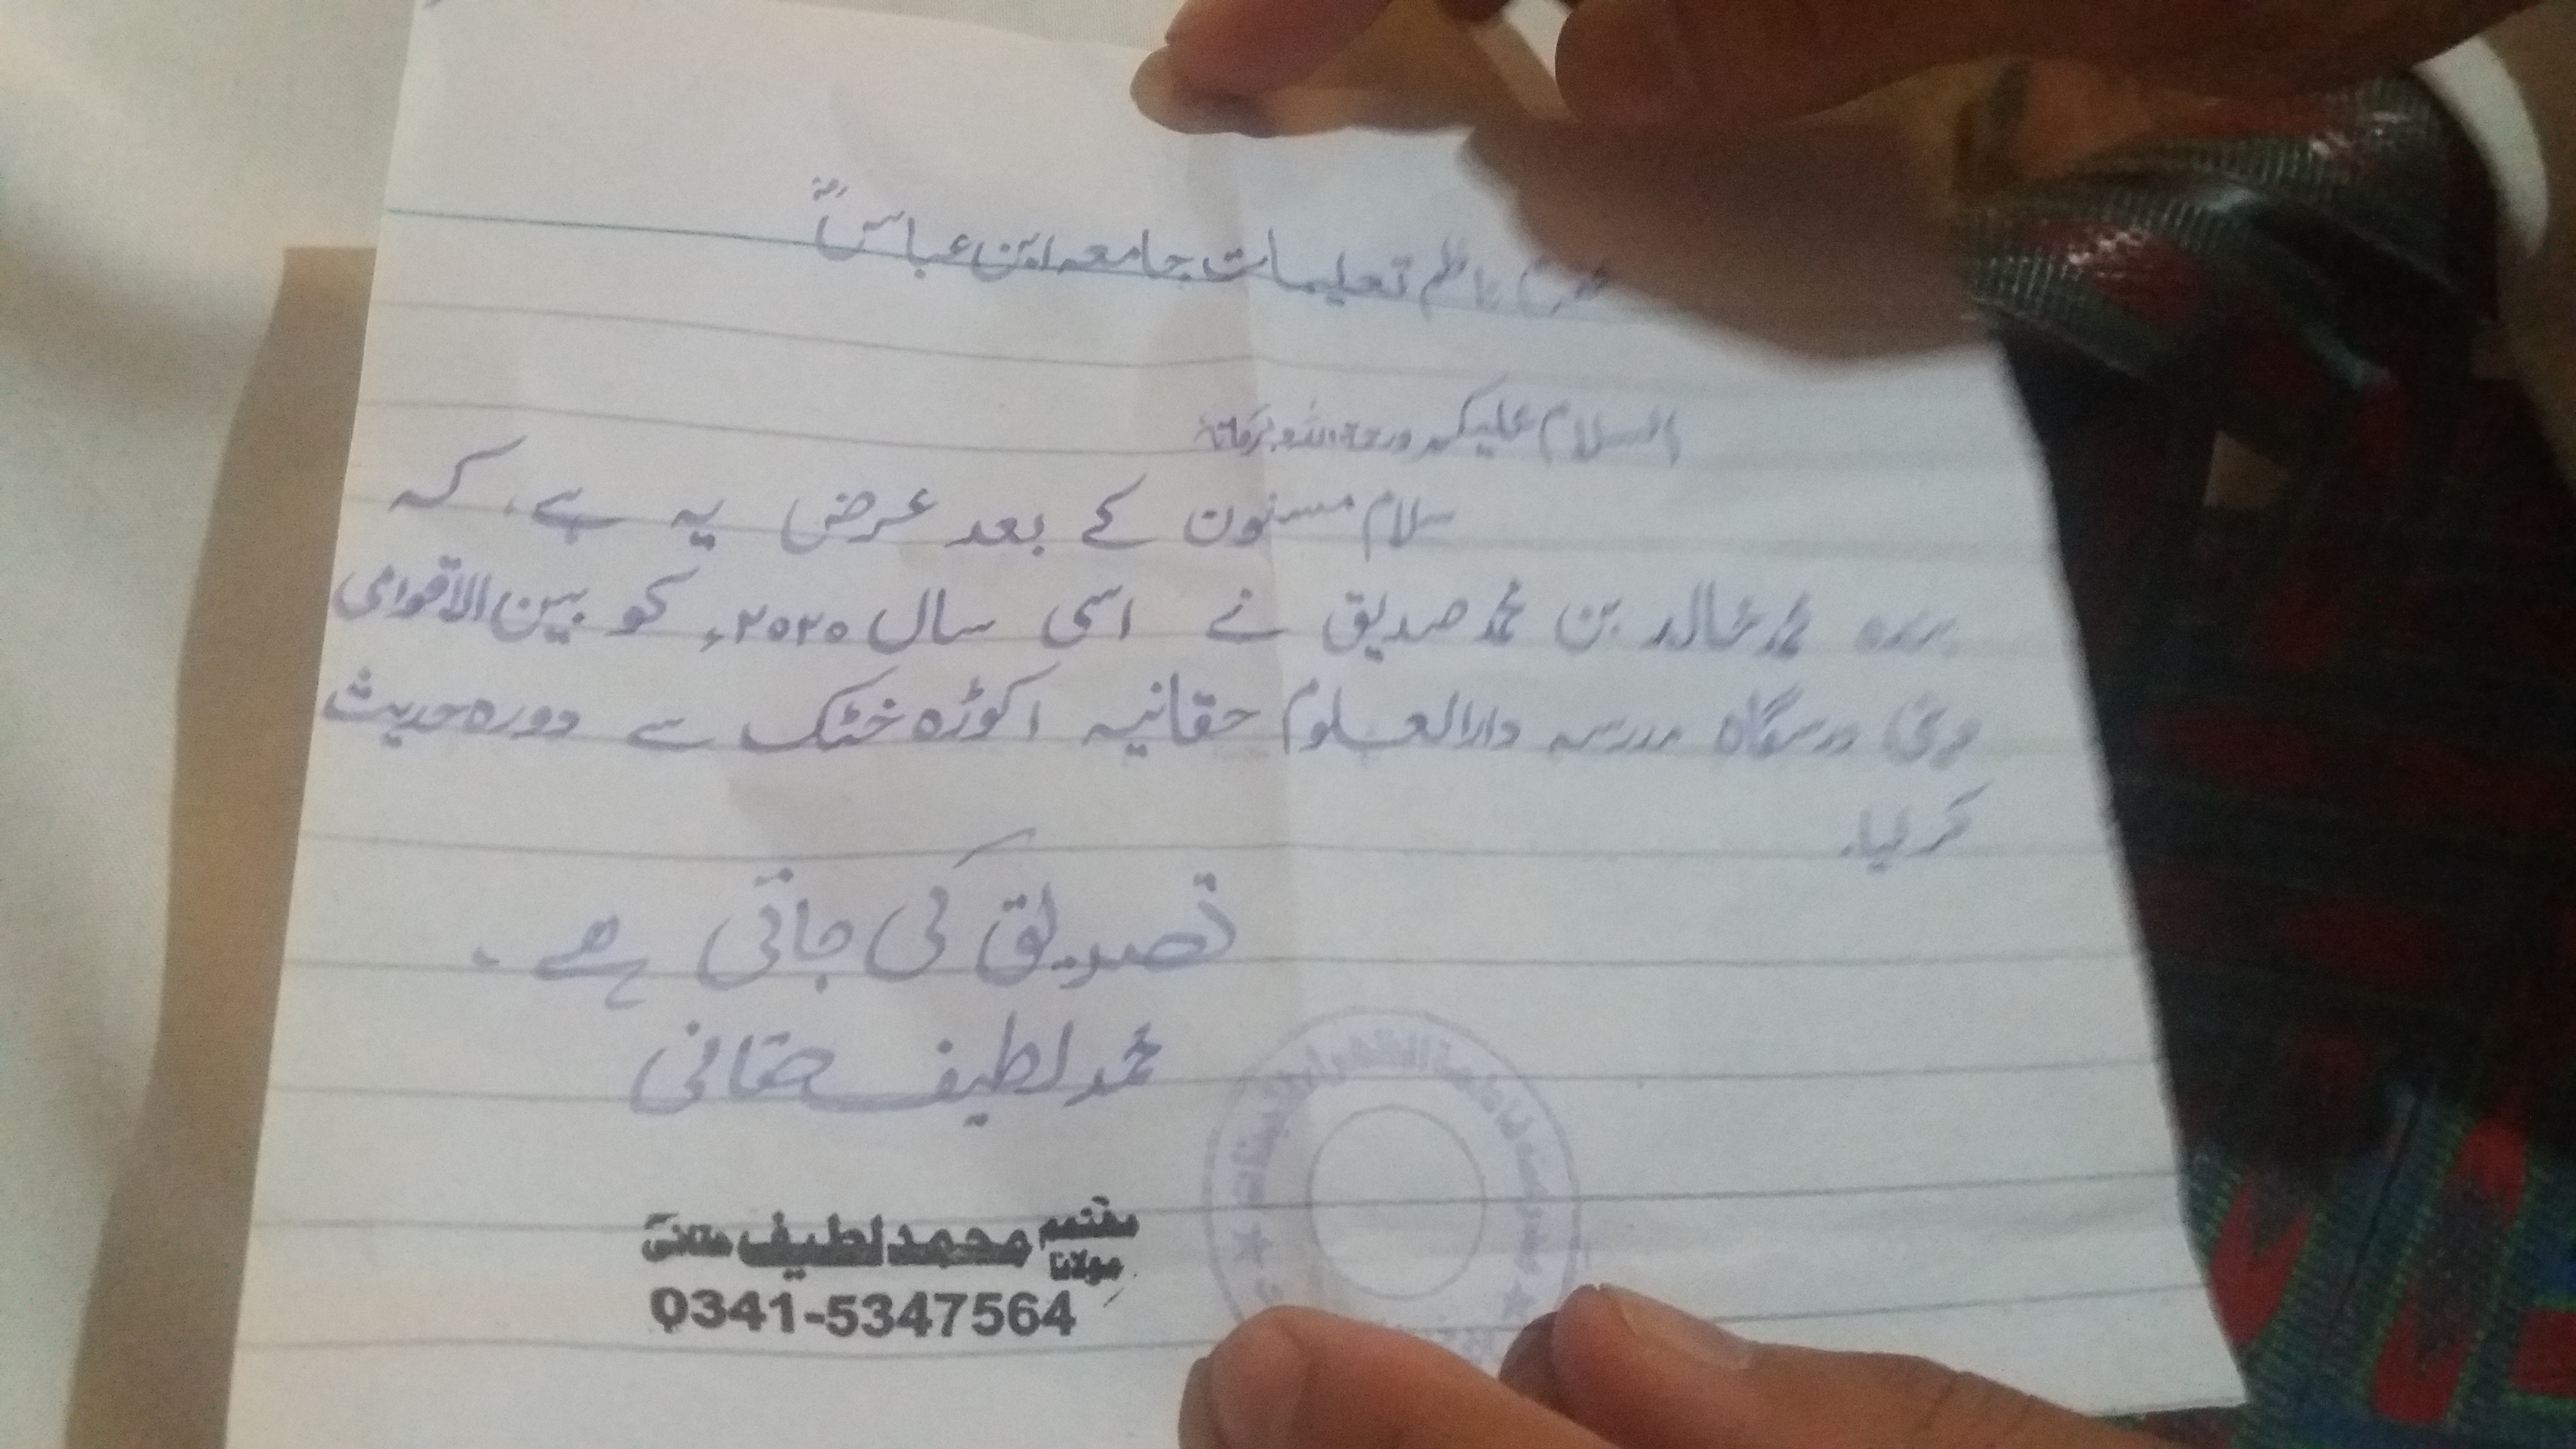 محترم ناظم تعلیمات جامعہ ابن عباسؓ
السلام علیکم ورحمۃ اللہ وبرکاتہ
سلام مسنون کے بعد عرض یہ ہے، کہ
بندہ محمد خالد بن محمد صدیق نے اسی سال ۲۰۲۰ء کو بین الاقوامی
دینی درسگاہ مدرسہ دارالعلوم حقانیہ اکوڑہ خٹک سے دورہ حدیث
کر لیا۔
تصدیق کی جاتی ہے۔
محمد لطیف حقانی
مھتمم مولانا محمد لطیف حقانی
0341-5347564